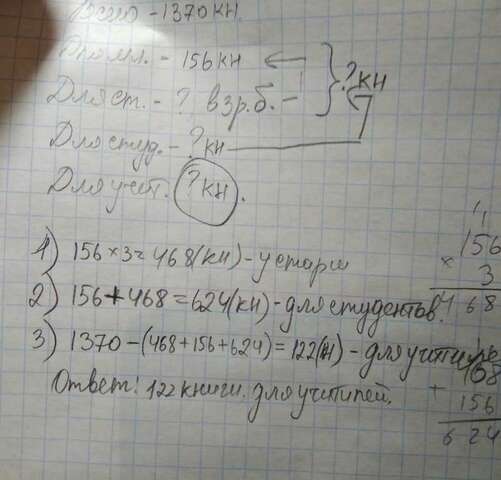 - 1370 кн.
Для мл. - 156 кн
Для ст. - ? в 3 р. б. - } ? кн
Для студ. - ? кн
Для учит. ? кн.
1) 156 × 3 = 468 (кн) - у старш
2) 156 + 468 = 624 (кн) - для студентов.
3) 1370 - (468 + 156 + 624) = 122 (кн) - для учит
Ответ: 122 книги. для учитилей.
11
156
× 3
468
1
468
+ 156
624